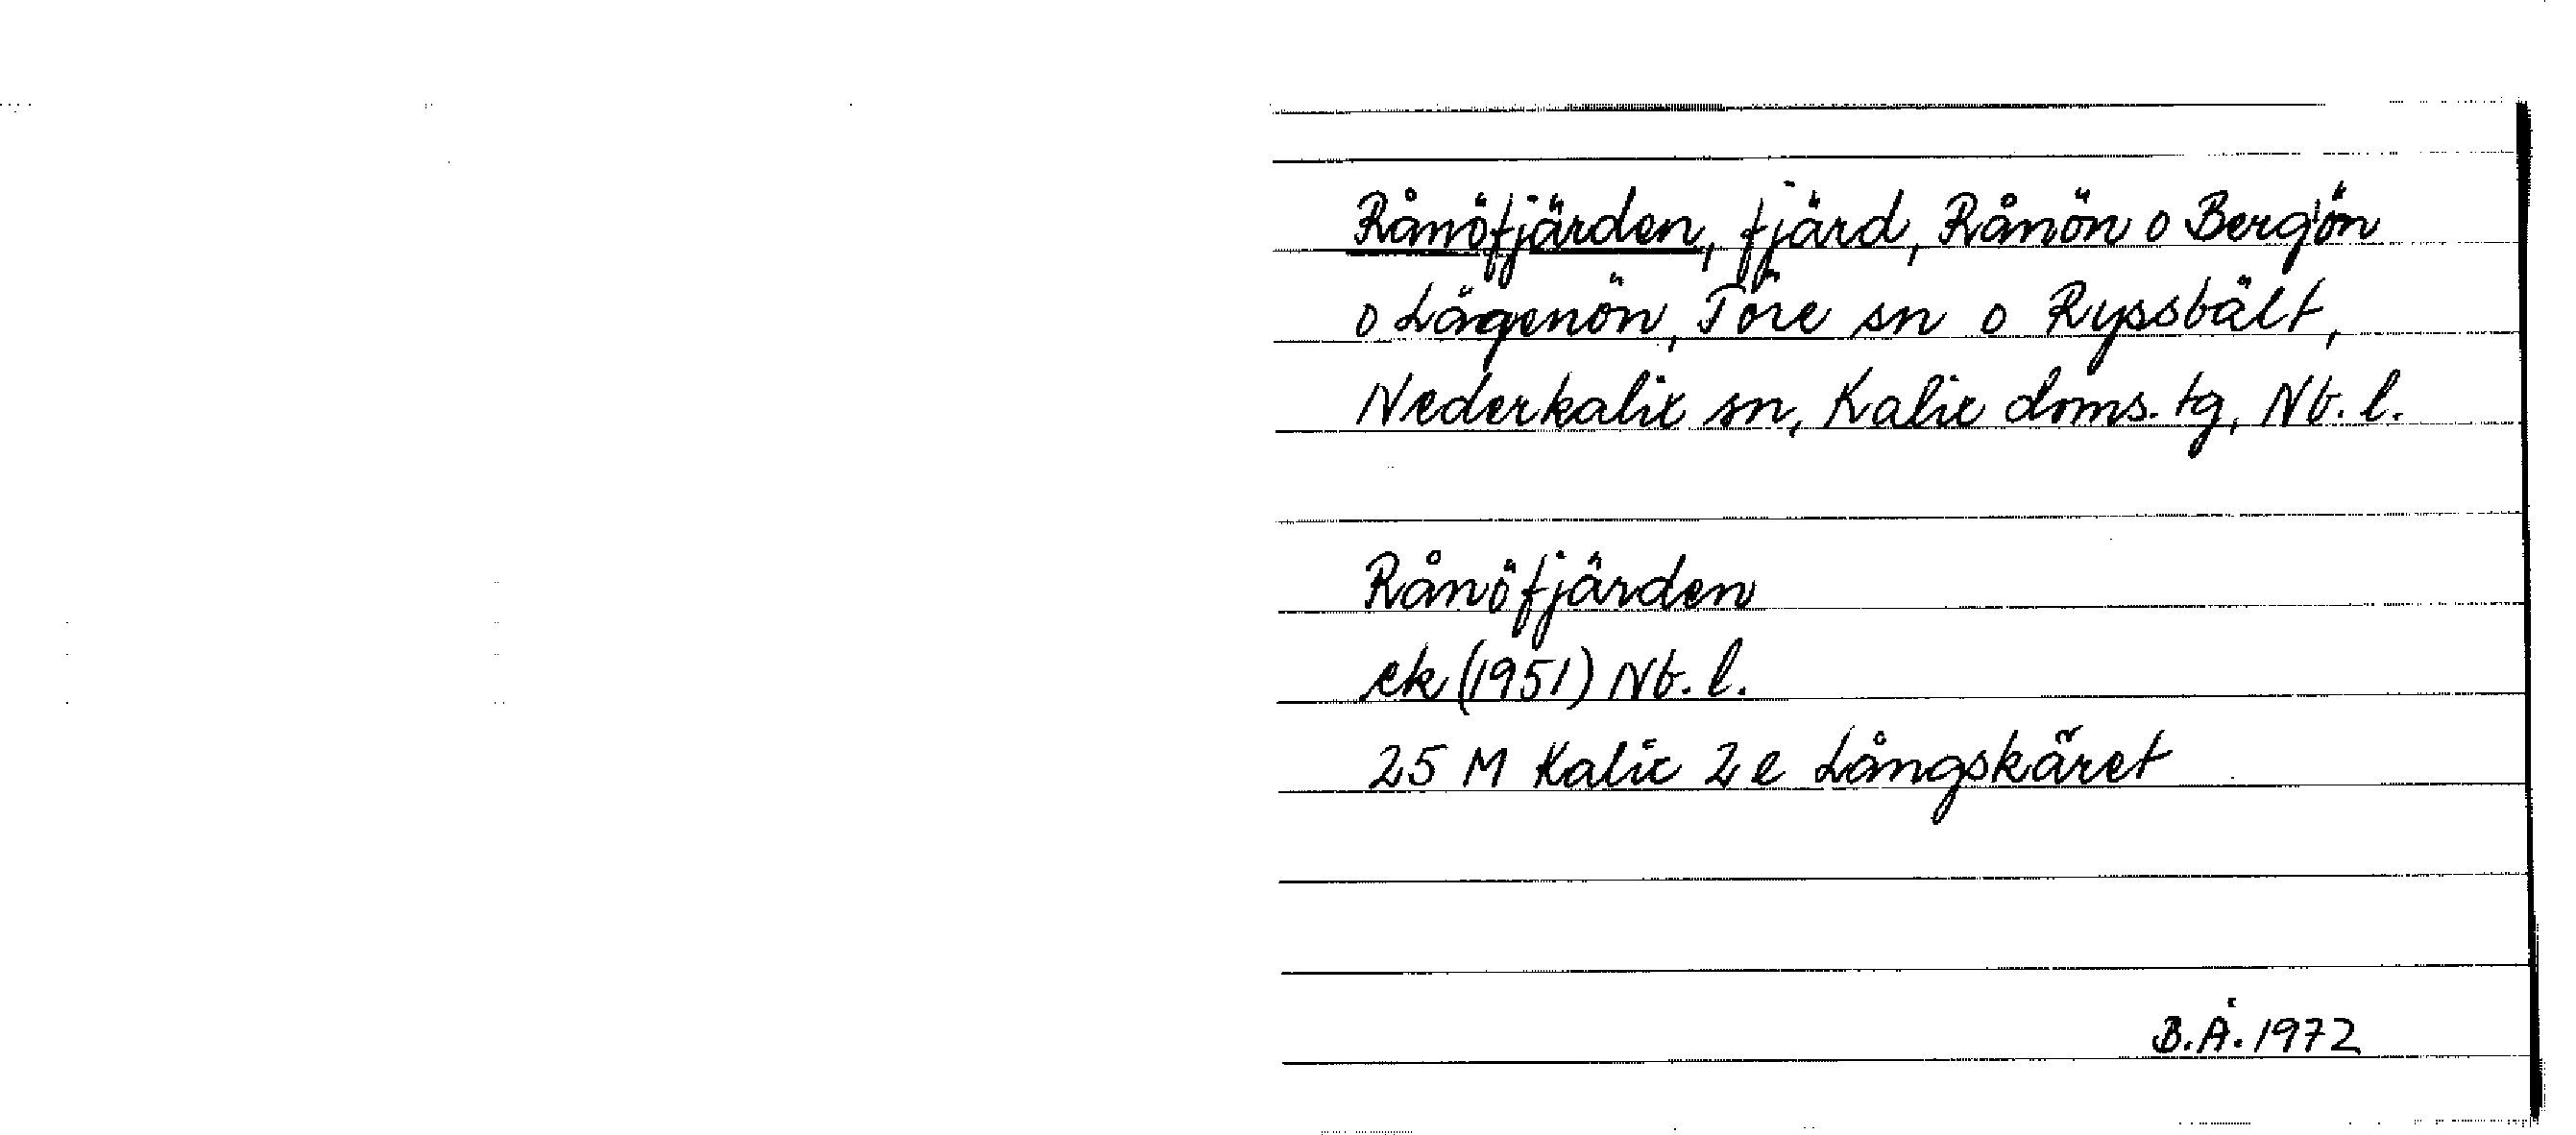 Rånöfjärden, fjärd, Rånön o Bergön
o Lågenön, Töre sn o Ryssbält,
Nederkalix sn, Kalix doms. tg, Nb. l.
Rånöfjärden
ek (1951) Nb. l.
25 M Kalix 2 e Långskäret
B.Å. 1972